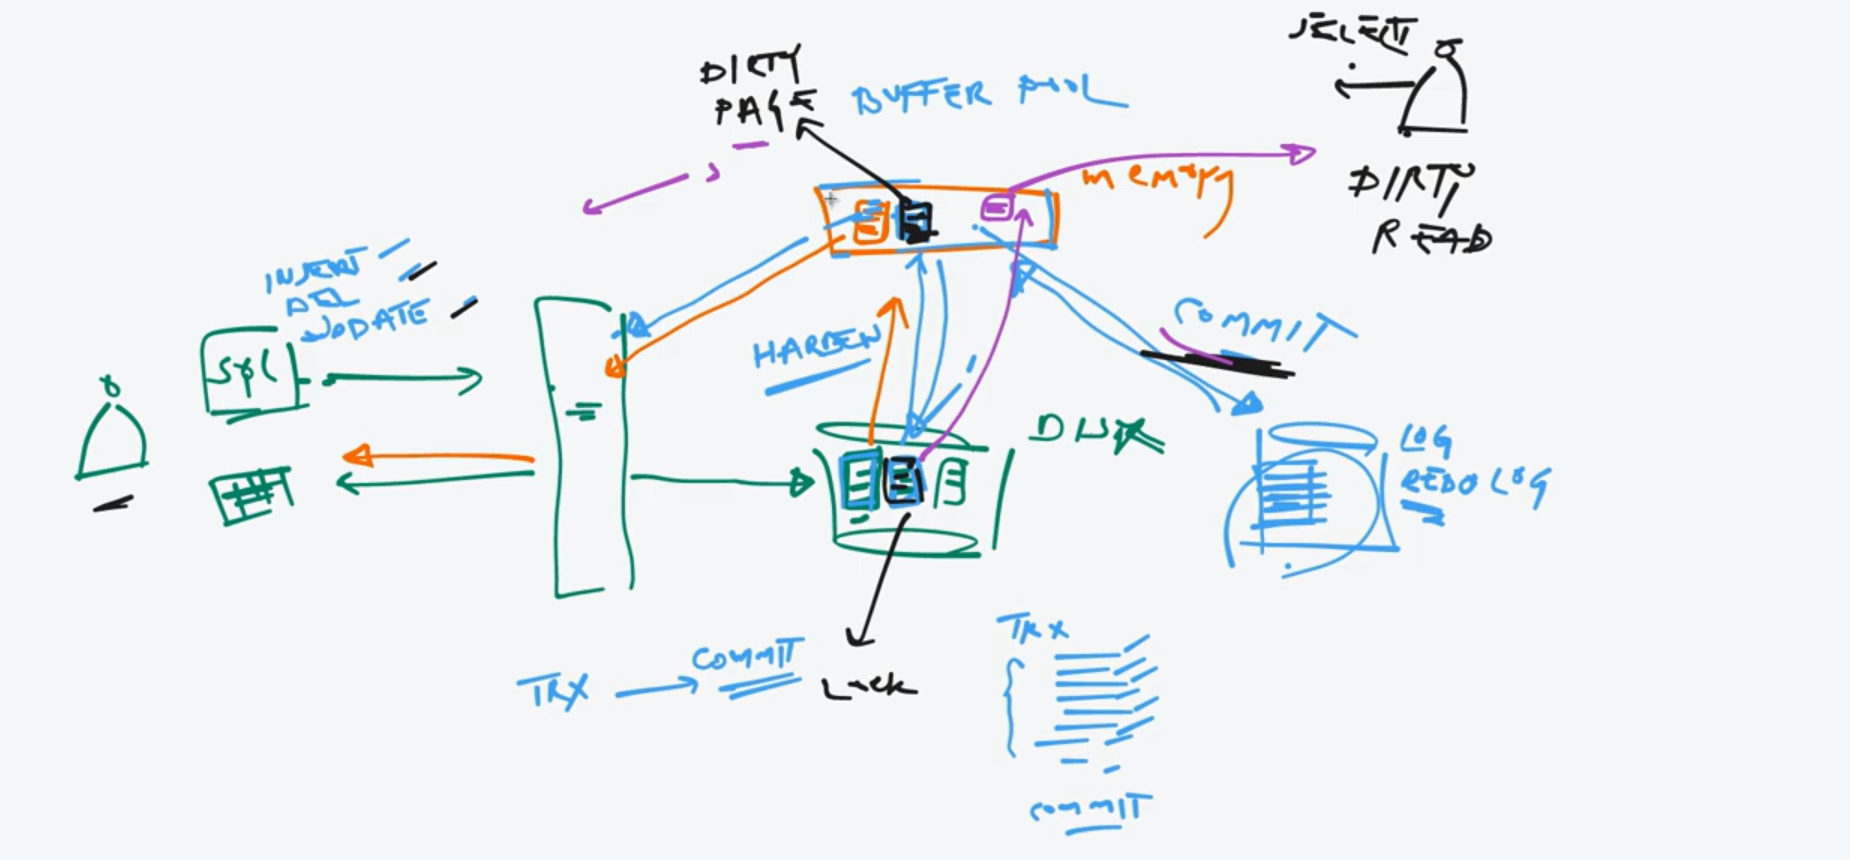 SELECT
DIRTY
PAGE
BUFFER POOL
memory
DIRTY
READ
INSERT
DEL
UPDATE
SQL
HARDEN
COMMIT
DISK
LOG
REDO LOG
TRX
COMMIT
Lock
TRX
COMMIT